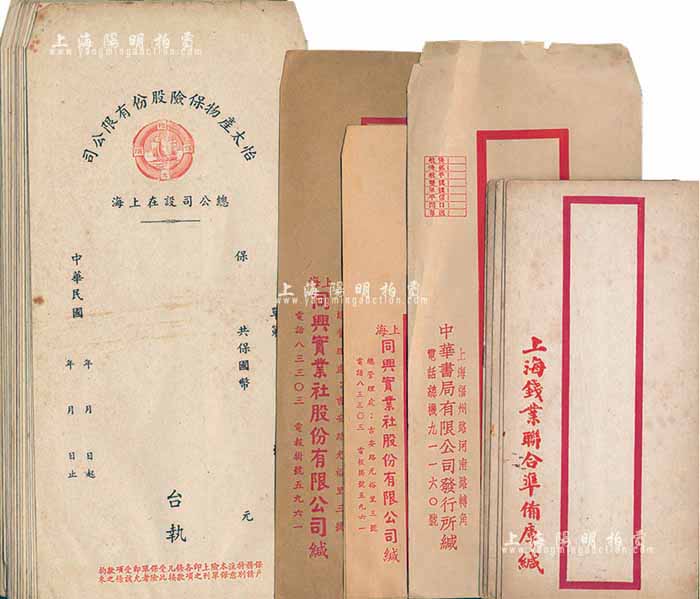 上海陽明拍賣
www.yangmingauction.com
怡太產物保險股份有限公司
總公司設在上海
保
共保國幣
元
中華民國
年 月 日起
年 月 日止
台執
上海
同興實業社股份有限公司緘
電話八三三〇三 電報掛號五九六一
上海
同興實業社股份有限公司緘
總管理處：吉安路元裕里三號
電話八三三〇三 電報掛號五九六一
上海福州路河南路轉角
中華書局有限公司發行所緘
電話總機九一一六〇號
上海錢業聯合準備庫緘
上海陽明拍賣
www.yangmingauction.com
上海陽明拍賣
www.yangmingauction.com